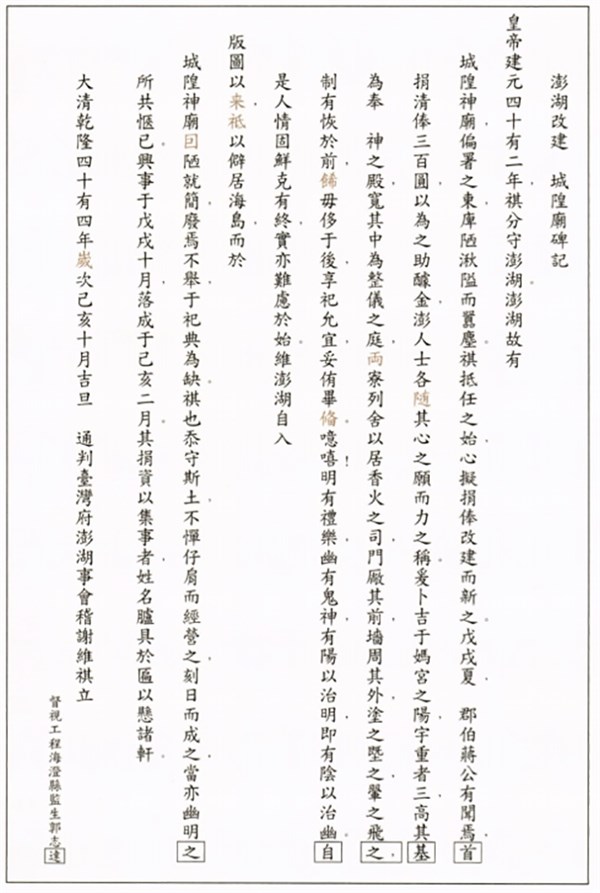 澎湖改建　城隍廟碑記
皇帝建元四十有二年祺分守澎湖澎湖故有
城隍神廟偏署之東庫陋湫隘而囂塵祺抵任之始心擬捐俸改建而新之戊戌夏　郡伯蔣公有聞焉首
捐清俸三百圓以為之助醵金澎人士各随其心之願而力之稱爰卜吉于媽宮之陽宇重者三高其基
為奉　神之殿寬其中為整儀之庭両寮列舍以居香火之司門厰其前墻周其外塗之塈之翬之飛之
制有恢於前餙毋侈于後享祀允宜妥侑畢俻噫嘻！明有禮樂幽有鬼神有陽以治明即有陰以治幽自
是人情固鮮克有終實亦難慮於始維澎湖自入
版圖以来祗以僻居海島而於
城隍神廟囙陋就簡廢焉不舉于祀典為缺祺也忝守斯土不憚仔肩而經營之刻日而成之當亦幽明之
所共愜已興事于戊戌十月落成于己亥二月其捐資以集事者姓名臚具於匾以懸諸軒
大清乾隆四十有四年嵗次己亥十月吉旦　通判臺灣府澎湖事會稽謝維祺立
督視工程海澄縣監生郭志達